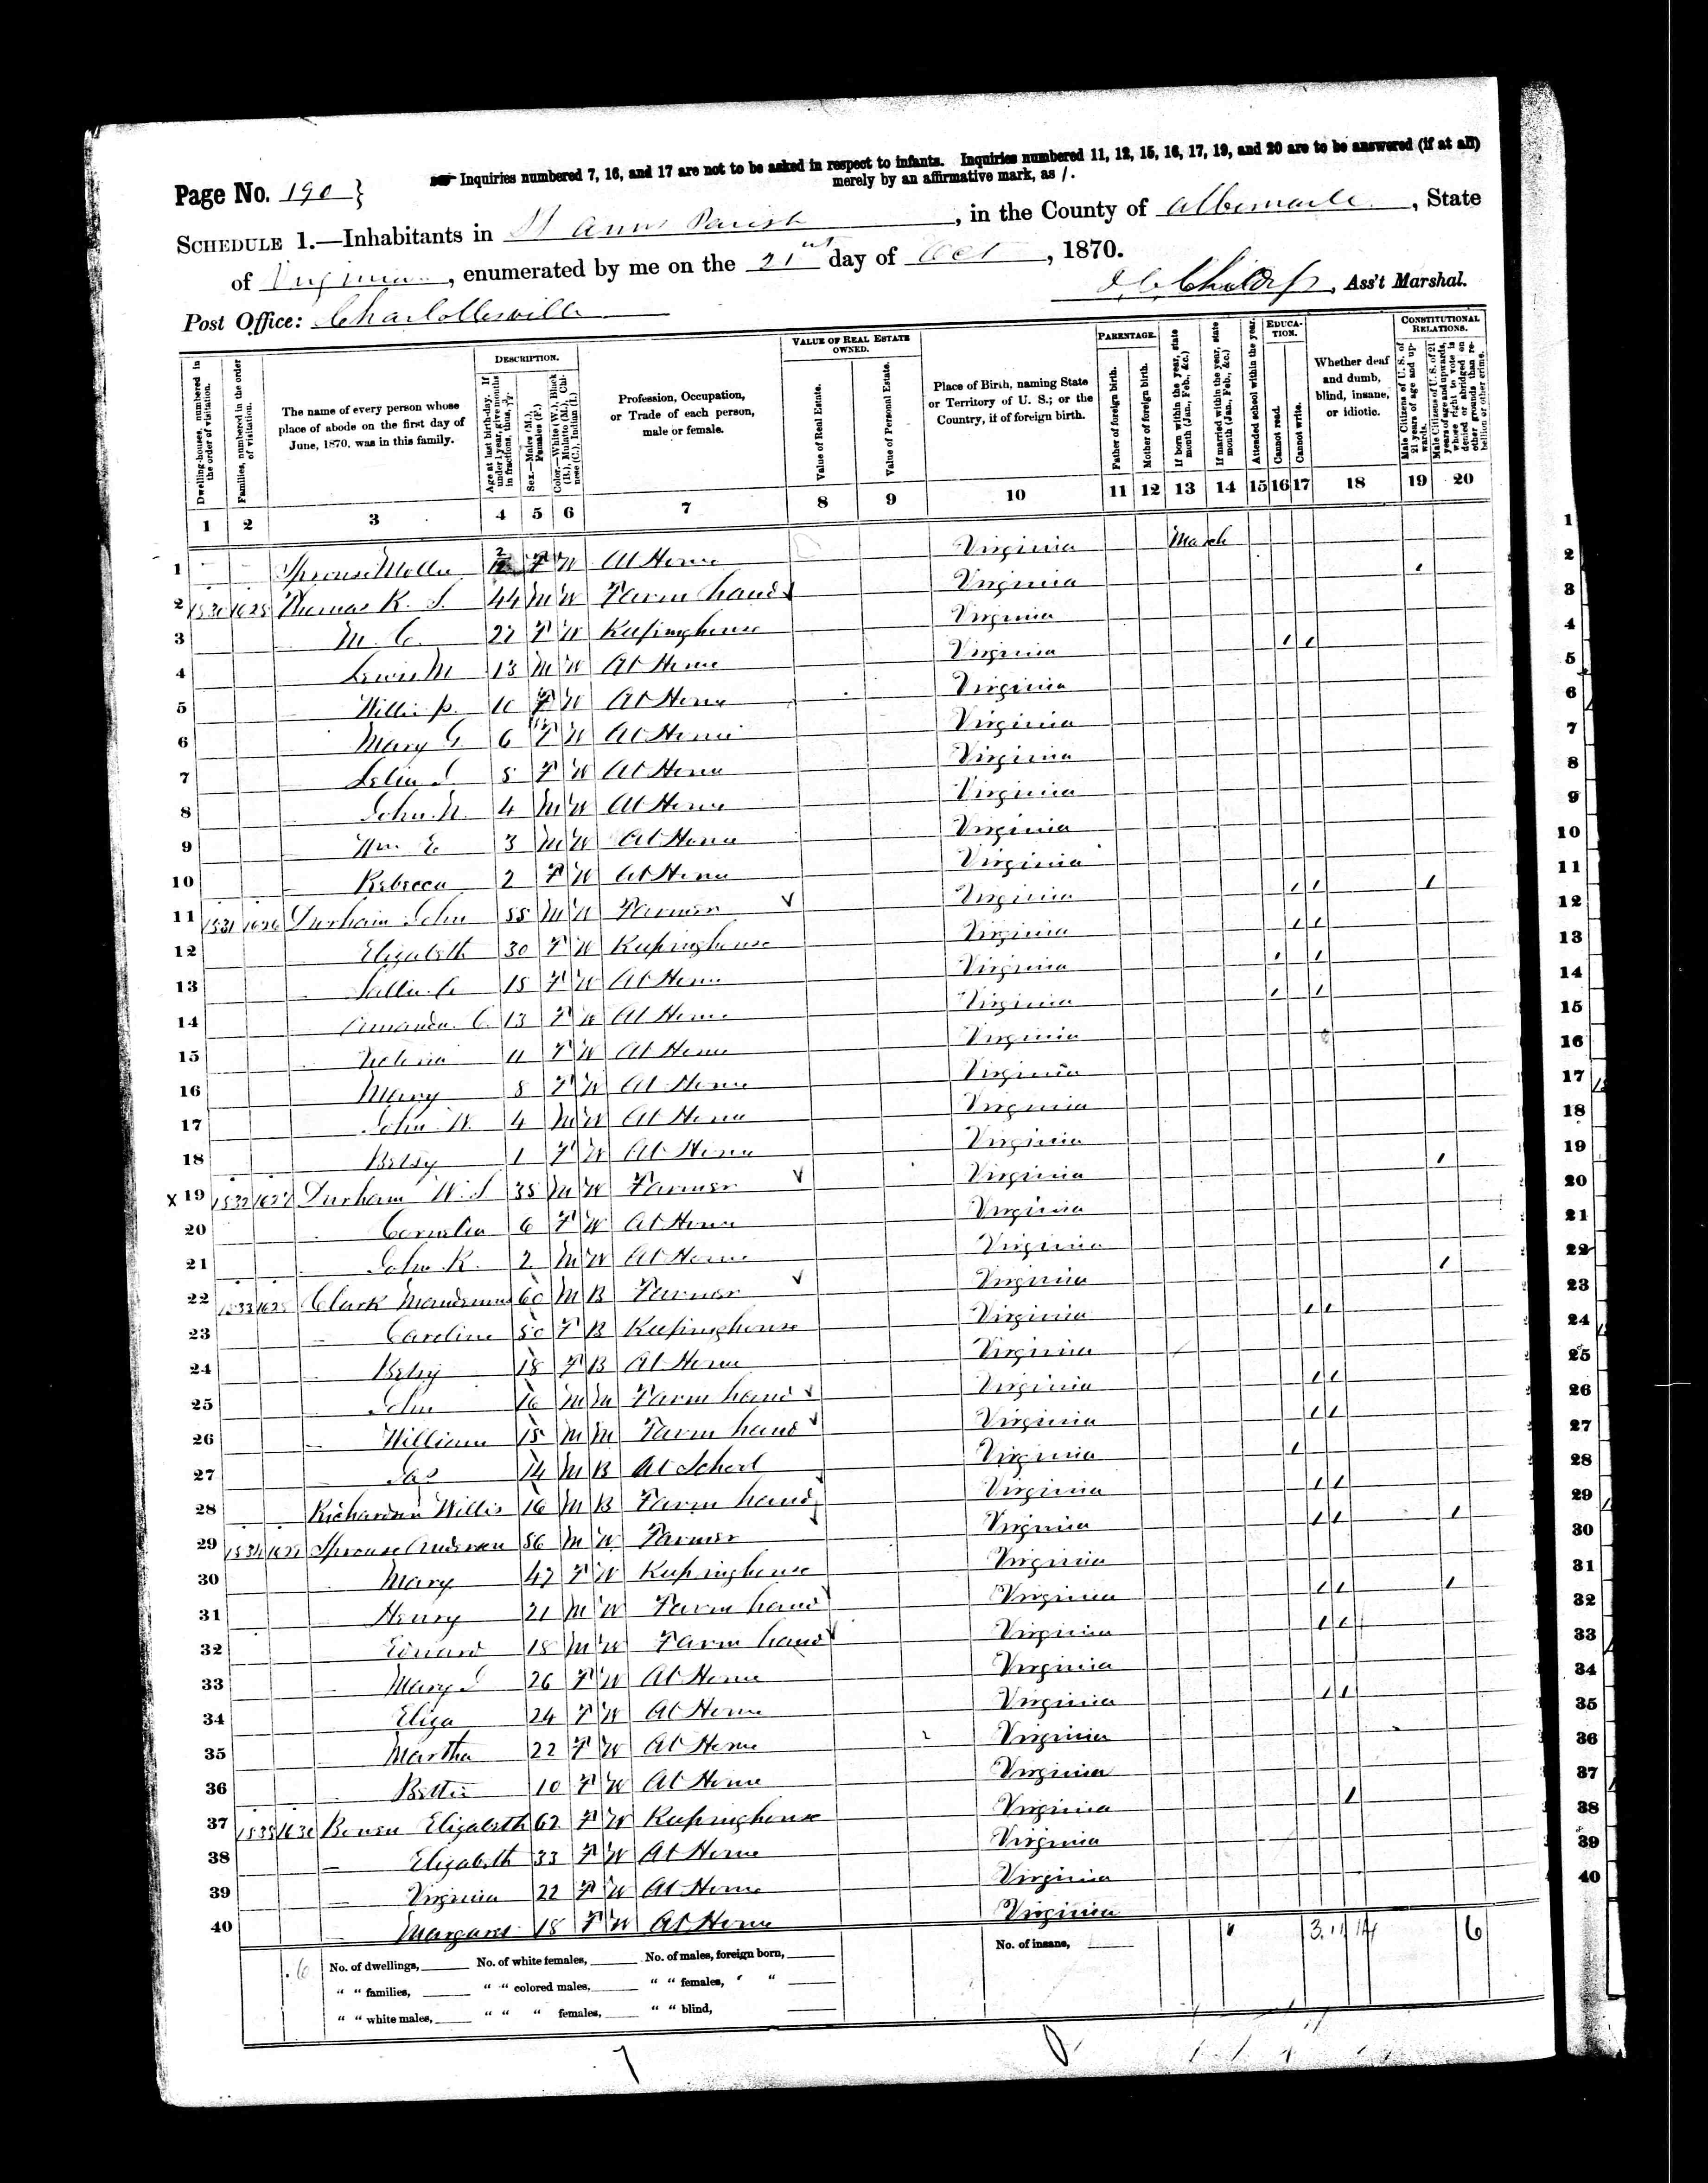 Page No. 190 } Inquiries numbered 7, 16, and 17 are not to be asked in respect to infants. Inquiries numbered 11, 12, 15, 16, 17, 19, and 20 are to be answered (if at all)
merely by an affirmative mark, as /.
SCHEDULE 1.—Inhabitants in St Anns Parish, in the County of Albemarle, State
of Virginia, enumerated by me on the 21st day of Oct, 1870.
Post Office: Charlottesville
Ass't Marshal.
Dwelling-houses, numbered in the order of visitation.
Families, numbered in the order of visitation.
The name of every person whose place of abode on the first day of June, 1870, was in this family.
DESCRIPTION.
Age at last birth-day. If under 1 year, give months in fractions, thus, 3/12.
Sex.—Males (M.), Females (F.)
Color.—White (W.), Black (B.), Mulatto (M.), Chinese (C.), Indian (I.)
Profession, Occupation, or Trade of each person, male or female.
VALUE OF REAL ESTATE OWNED.
Value of Real Estate.
Value of Personal Estate.
Place of Birth, naming State or Territory of U. S.; or the Country, if of foreign birth.
PARENTAGE.
Father of foreign birth.
Mother of foreign birth.
If born within the year, state month (Jan., Feb., &c.)
If married within the year, state month (Jan., Feb., &c.)
Attended school within the year.
EDUCATION.
Cannot read.
Cannot write.
Whether deaf and dumb, blind, insane, or idiotic.
CONSTITUTIONAL RELATIONS.
Male Citizens of U. S. of 21 years of age and upwards.
Male Citizens of U. S. of 21 years of age and upwards, whose right to vote is denied or abridged on other grounds than rebellion or other crime.
1 2 3 4 5 6 7 8 9 10 11 12 13 14 15 16 17 18 19 20
1 Sprouse Mollie 2/12 F W At Home Virginia March
2 1530 1625 Thomas R. S. 44 M W Farm hand Virginia /
3 M. C. 27 F W Keepinghouse Virginia
4 Lewis M 13 M W At Home Virginia / /
5 Willie P. 10 W At Home Virginia
6 Mary G. 6 F W At Home Virginia
7 Lelia J 5 F W At Home Virginia
8 John N. 4 M W At Home Virginia
9 Wm E 3 M W At Home Virginia
10 Rebecca 2 F W At Home Virginia
11 1531 1626 Durham John 55 M W Farmer Virginia / / /
12 Elizabeth 30 F W Keepinghouse Virginia / /
13 Sallie C 15 F W At Home Virginia / /
14 Amanda C. 13 F W At Home Virginia / /
15 11 F W At Home Virginia
16 Mary 8 F W At Home Virginia
17 John W 4 M W At Home Virginia
18 Betsy 1 F W At Home Virginia
x 19 1532 1627 Durham W. S 35 M W Farmer Virginia /
20 Cornelia 6 F W At Home Virginia
21 John R. 2 M W At Home Virginia
22 1533 1628 Clark 60 M B Farmer Virginia /
23 Caroline 50 F B Keepinghouse Virginia / /
24 Betsy 18 F B At Home Virginia
25 John 16 M M Farm hand Virginia / /
26 William 15 M M Farm hand Virginia / /
27 Jas 14 M B At School Virginia /
28 Richardson Willis 16 M B Farm hand Virginia / /
29 1534 1629 Sprouse Anderson 56 M W Farmer Virginia / / /
30 Mary 47 F W Keepinghouse Virginia
31 Henry 21 M W Farm hand Virginia / / /
32 Edward 18 M W Farm hand Virginia / /
33 Mary J 26 F W At Home Virginia
34 Eliza 24 F W At Home Virginia / /
35 Martha 22 F W At Home Virginia
36 Bettie 10 F W At Home Virginia
37 1535 1630 Bowen Elizabeth 62 F W Keepinghouse Virginia /
38 Elizabeth 33 F W At Home Virginia
39 Virginia 22 F W At Home Virginia
40 Margaret 18 F W At Home Virginia
6 No. of dwellings, No. of white females, No. of males, foreign born, No. of insane, 3 11 14 6
" " families, " " colored males, " " females, " "
" " white males, " " " females, " " blind,
1
2
3
4
5
6
7
8
9
10
11
12
13
14
15
16
17
18
19
20
21
22
23
24
25
26
27
28
29
30
31
32
33
34
35
36
37
38
39
40